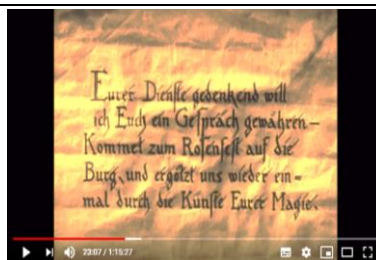 Eurer Dienste gedenkend will
ich Euch ein Gespräch gewähren –
Kommet zum Rosenfest auf die
Burg, und ergötzt uns wieder ein=
mal durch die Künste Eurer Magie.
23:07 / 1:15:27